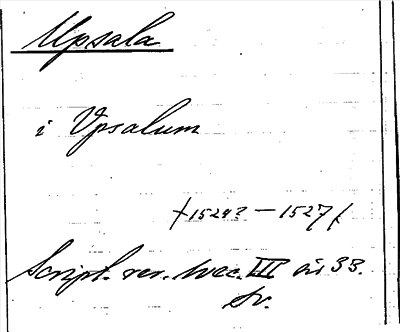 Upsala
i Vpsalum
+1524?—1527+
Script. rer. svec. III ss 33.
Sv.